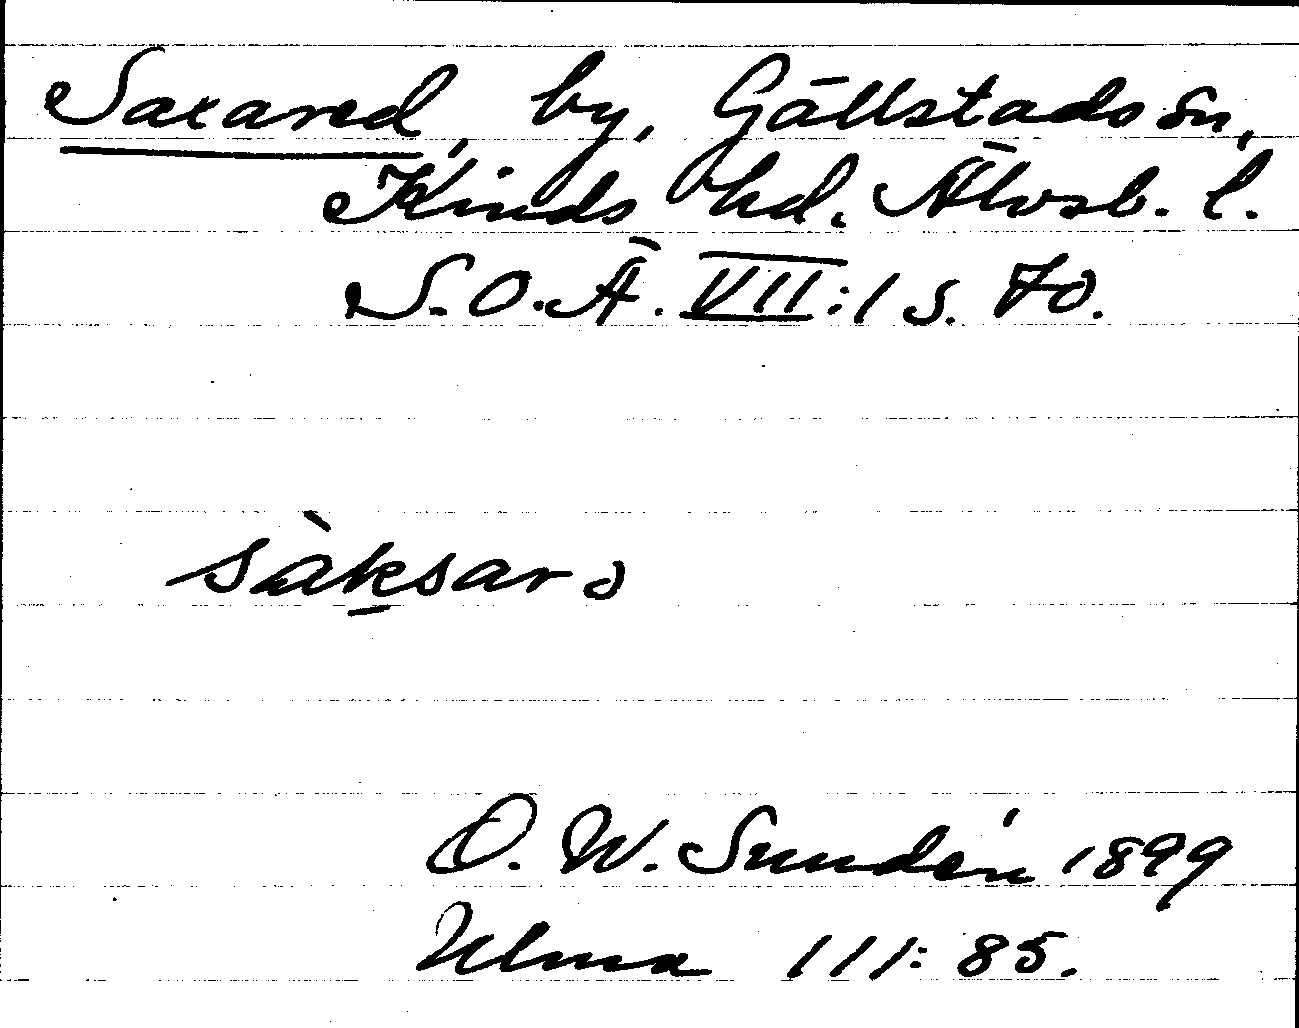 Saxared, by, Gällstads sn,
Kinds hd. Älvsb. l.
S.O.Ä. VII:1 s. 70.
sàksar ɔ
O. W. Sundén 1899
Ulma 111: 85.